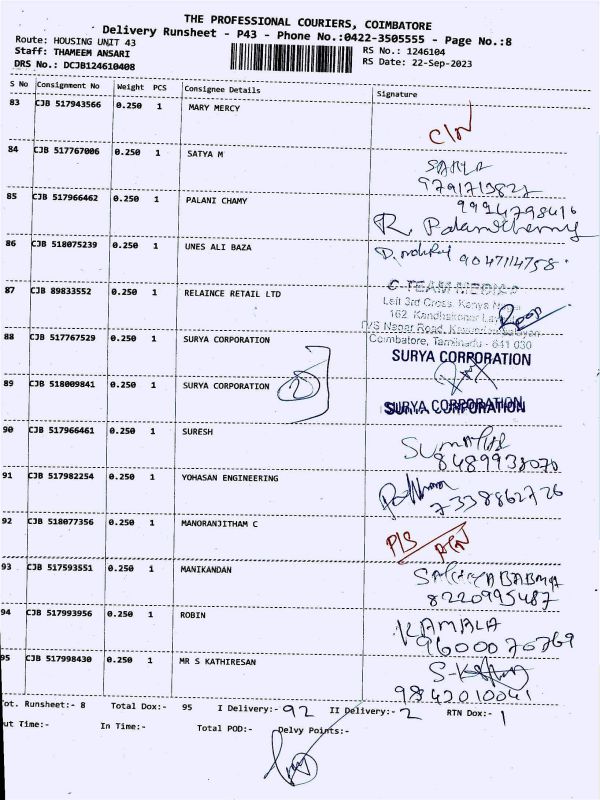 THE PROFESSIONAL COURIERS, COIMBATORE
Delivery Runsheet - P43 - Phone No.:0422-3505555 - Page No.:8
Route: HOUSING UNIT 43
RS No.: 1246104
Staff: THAMEEM ANSARI
RS Date: 22-Sep-2023
DRS No.: DCJB124610408
S No Consignment No Weight PCS Consignee Details Signature
83 CJB 517943566 0.250 1 MARY MERCY
84 CJB 517767006 0.250 1 SATYA M
9791713821
85 CJB 517966462 0.250 1 PALANI CHAMY 9994798416
R.
86 CJB 518075239 0.250 1 UNES ALI BAZA 9047114758
87 CJB 89833552 0.250 1 RELAINCE RETAIL LTD C TEAM MEDIA
Left 3rd Cross, Kanya
162, Kandhakonar
TVS Nagar Road,
88 CJB 517767529 0.250 1 SURYA CORPORATION Coimbatore, Tamilnadu - 641 030
SURYA CORPORATION
89 CJB 518009841 0.250 1 SURYA CORPORATION 2
SURYA CORPORATION
90 CJB 517966461 0.250 1 SURESH
8489938070
91 CJB 517982254 0.250 1 YOHASAN ENGINEERING
7338862726
92 CJB 518077356 0.250 1 MANORANJITHAM C
93 CJB 517593551 0.250 1 MANIKANDAN
8220995487
94 CJB 517993956 0.250 1 ROBIN KAMALA
9600070769
95 CJB 517998430 0.250 1 MR S KATHIRESAN
9842010041
ot. Runsheet:- 8 Total Dox:- 95 I Delivery:- 92 II Delivery:- 2 RTN Dox:- 1
ut Time:- In Time:- Total POD:- Delvy Points:-